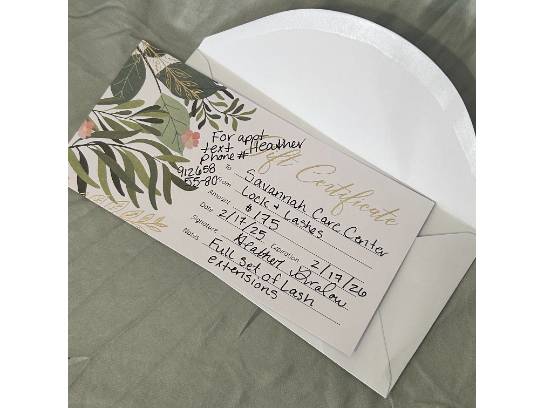 Gift Certificate
For appt
text Heather
phone#
912 658
55-80
To Savannah Care Center
From Lock & Lashes
Amount $175
Date 2/17/25 Expiration 2/17/26
Signature Heather
Notes Full set of Lash
extensions